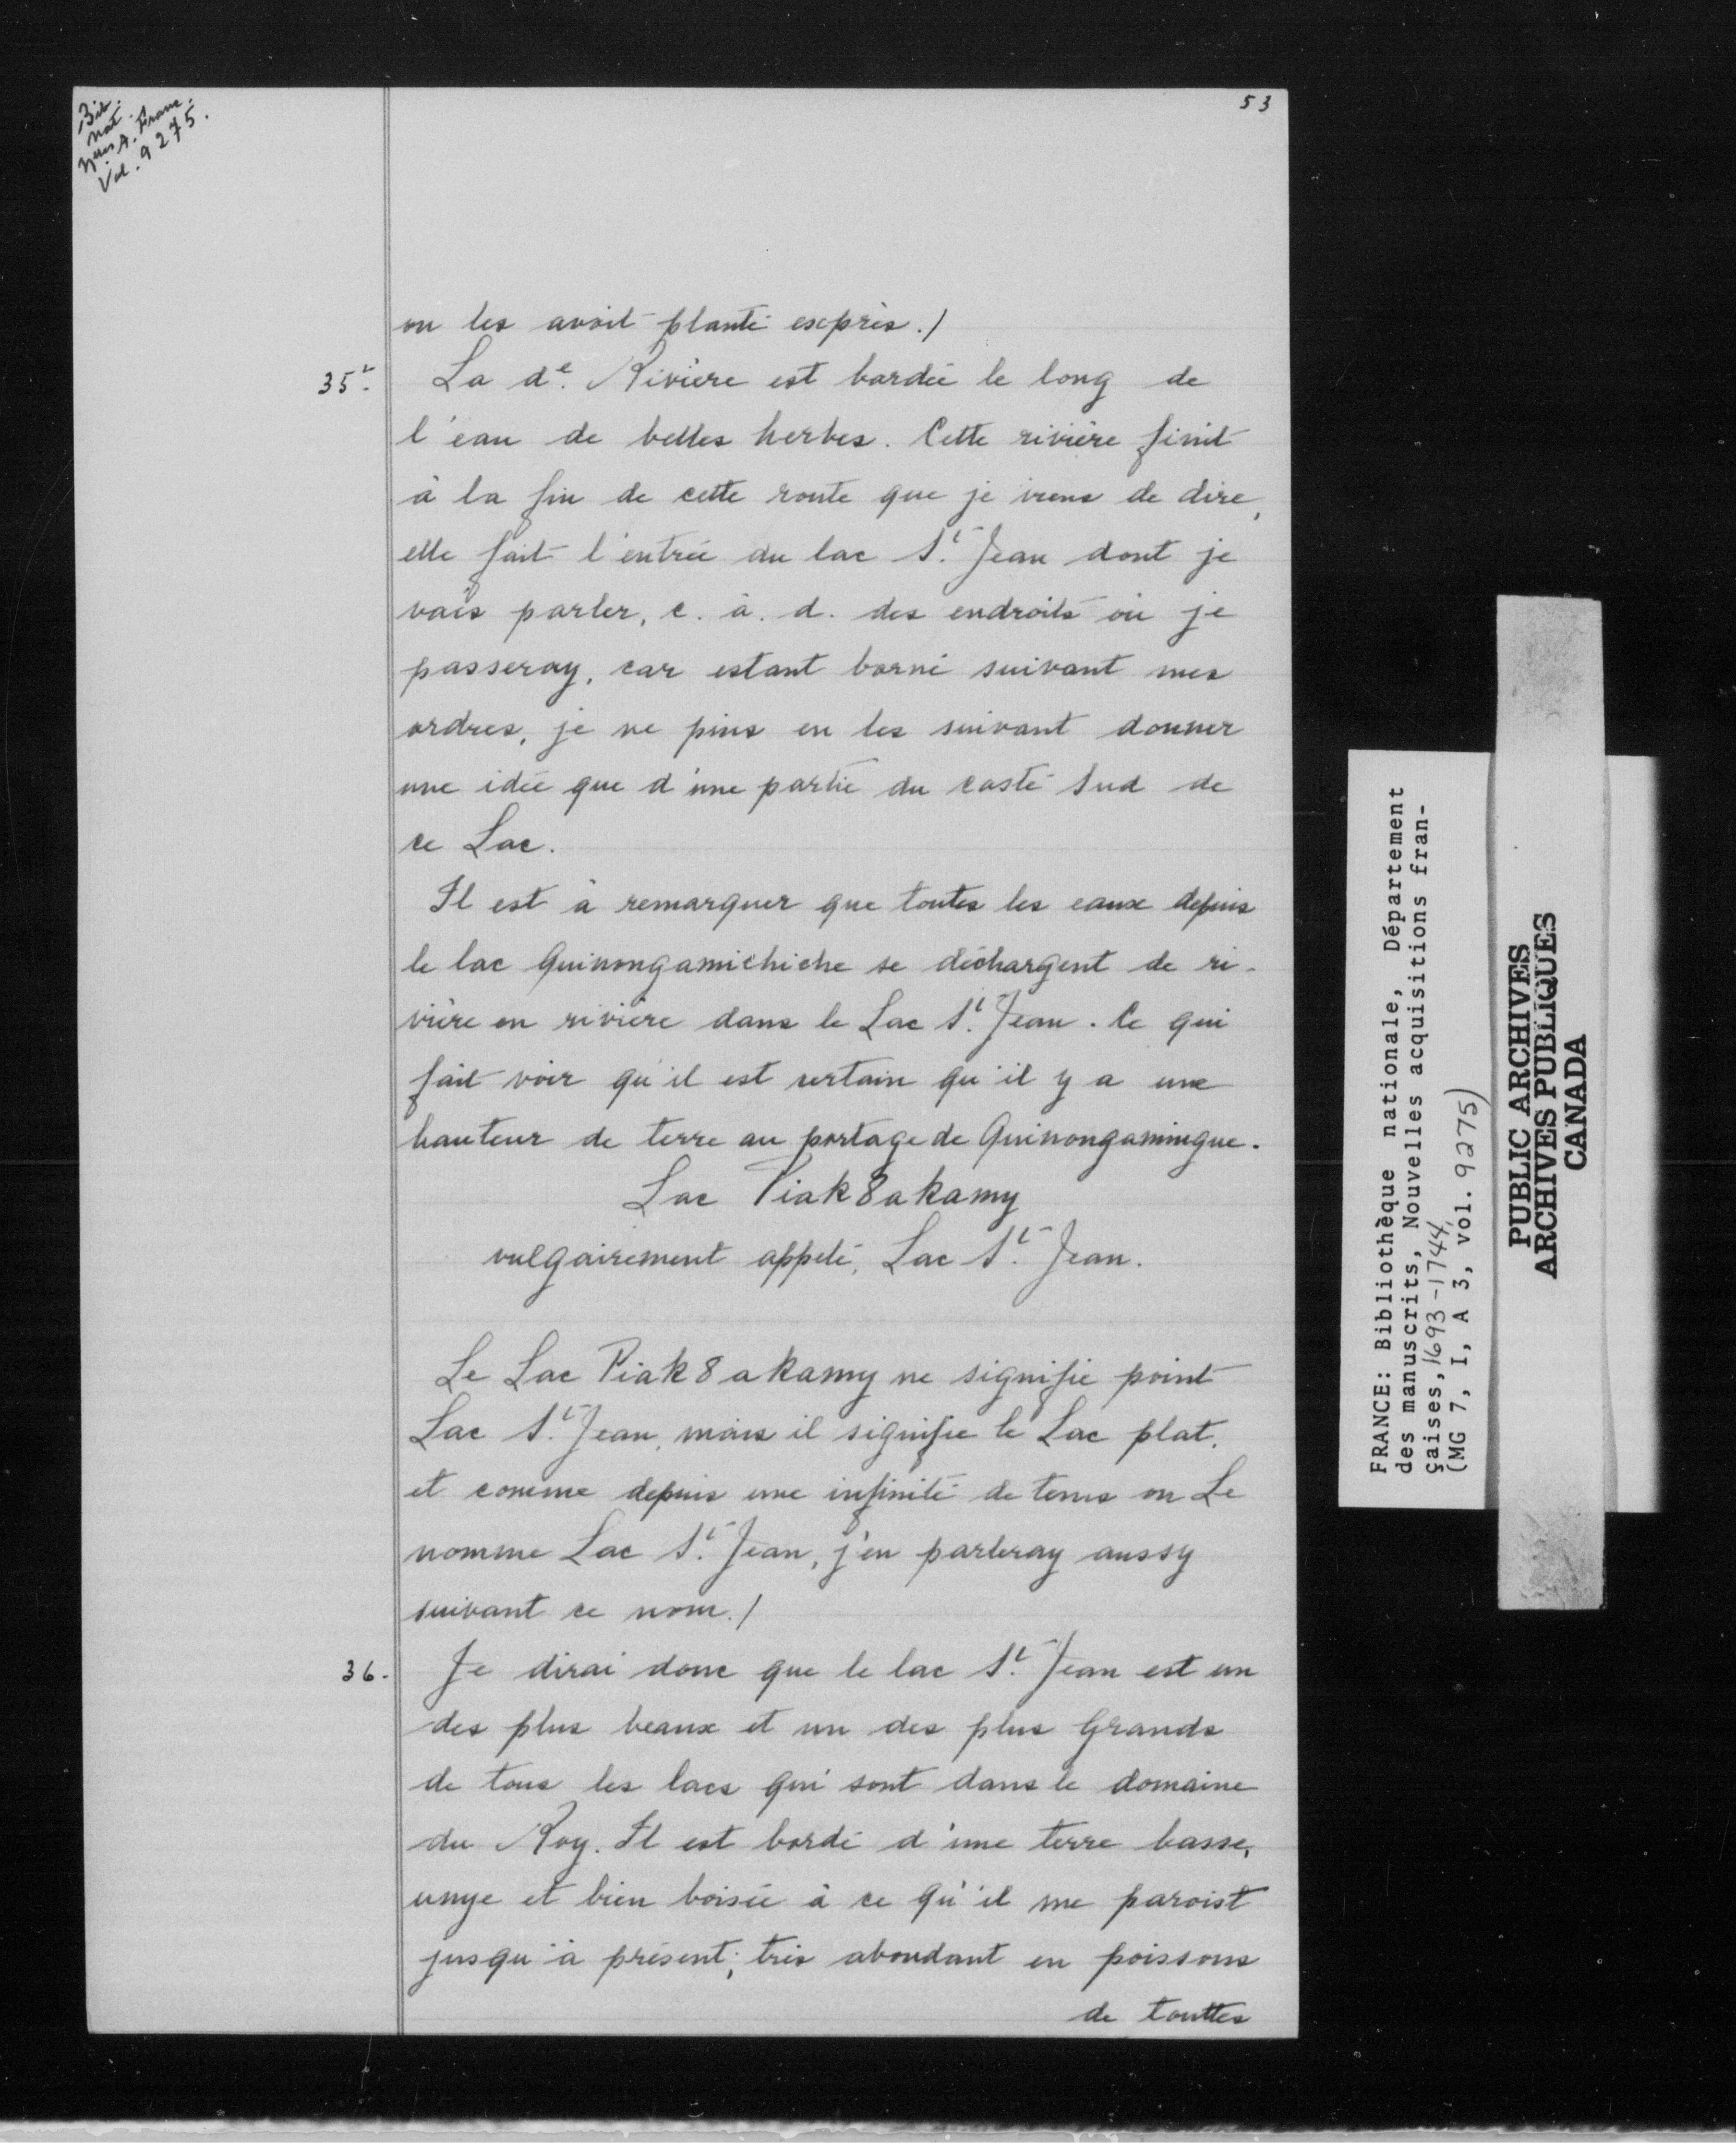 Bib.
nat.
Vol. 9275.
53
on les avoit planté exprès./
35°. La de. Rivière est bordée le long de
l'eau de belles herbes. Cette rivière finit
à la fin de cette route que je viens de dire,
elle fait l'entrée du lac St. Jean dont je
vais parler, c. à. d. des endroits où je
passeray, car estant borné suivant mes
ordres, je ne puis en les suivant donner
une idée que d'une partie du costé Sud de
ce Lac.
Il est à remarquer que toutes les eaux depuis
le lac Quinongamichiche se déchargent de ri-
vière en rivière dans le Lac St. Jean. Ce qui
fait voir qu'il est certain qu'il y a une
hauteur de terre au portage de Quinongamingue.
Lac Piak8akamy
vulgairement appelé, Lac St. Jean.
Le Lac Piak8akamy ne signifie point
Lac St. Jean, mais il signifie le Lac plat.
et comme depuis une infinité de tems on Le
nomme Lac St. Jean, j'en parleray aussy
suivant ce nom./
36. Je dirai donc que le lac St. Jean est un
des plus beaux et un des plus Grands
de tous les lacs qui sont dans le domaine
du Roy. Il est bordé d'une terre basse,
unye et bien boisée à ce qu'il me paroist
jusqu'à présent; très abondant en poissons
de touttes
FRANCE: Bibliothèque nationale, Département
des manuscrits, Nouvelles acquisitions fran-
çaises, 1693-1744,
(MG 7, I, A 3, vol. 9275)
PUBLIC ARCHIVES
ARCHIVES PUBLIQUES
CANADA